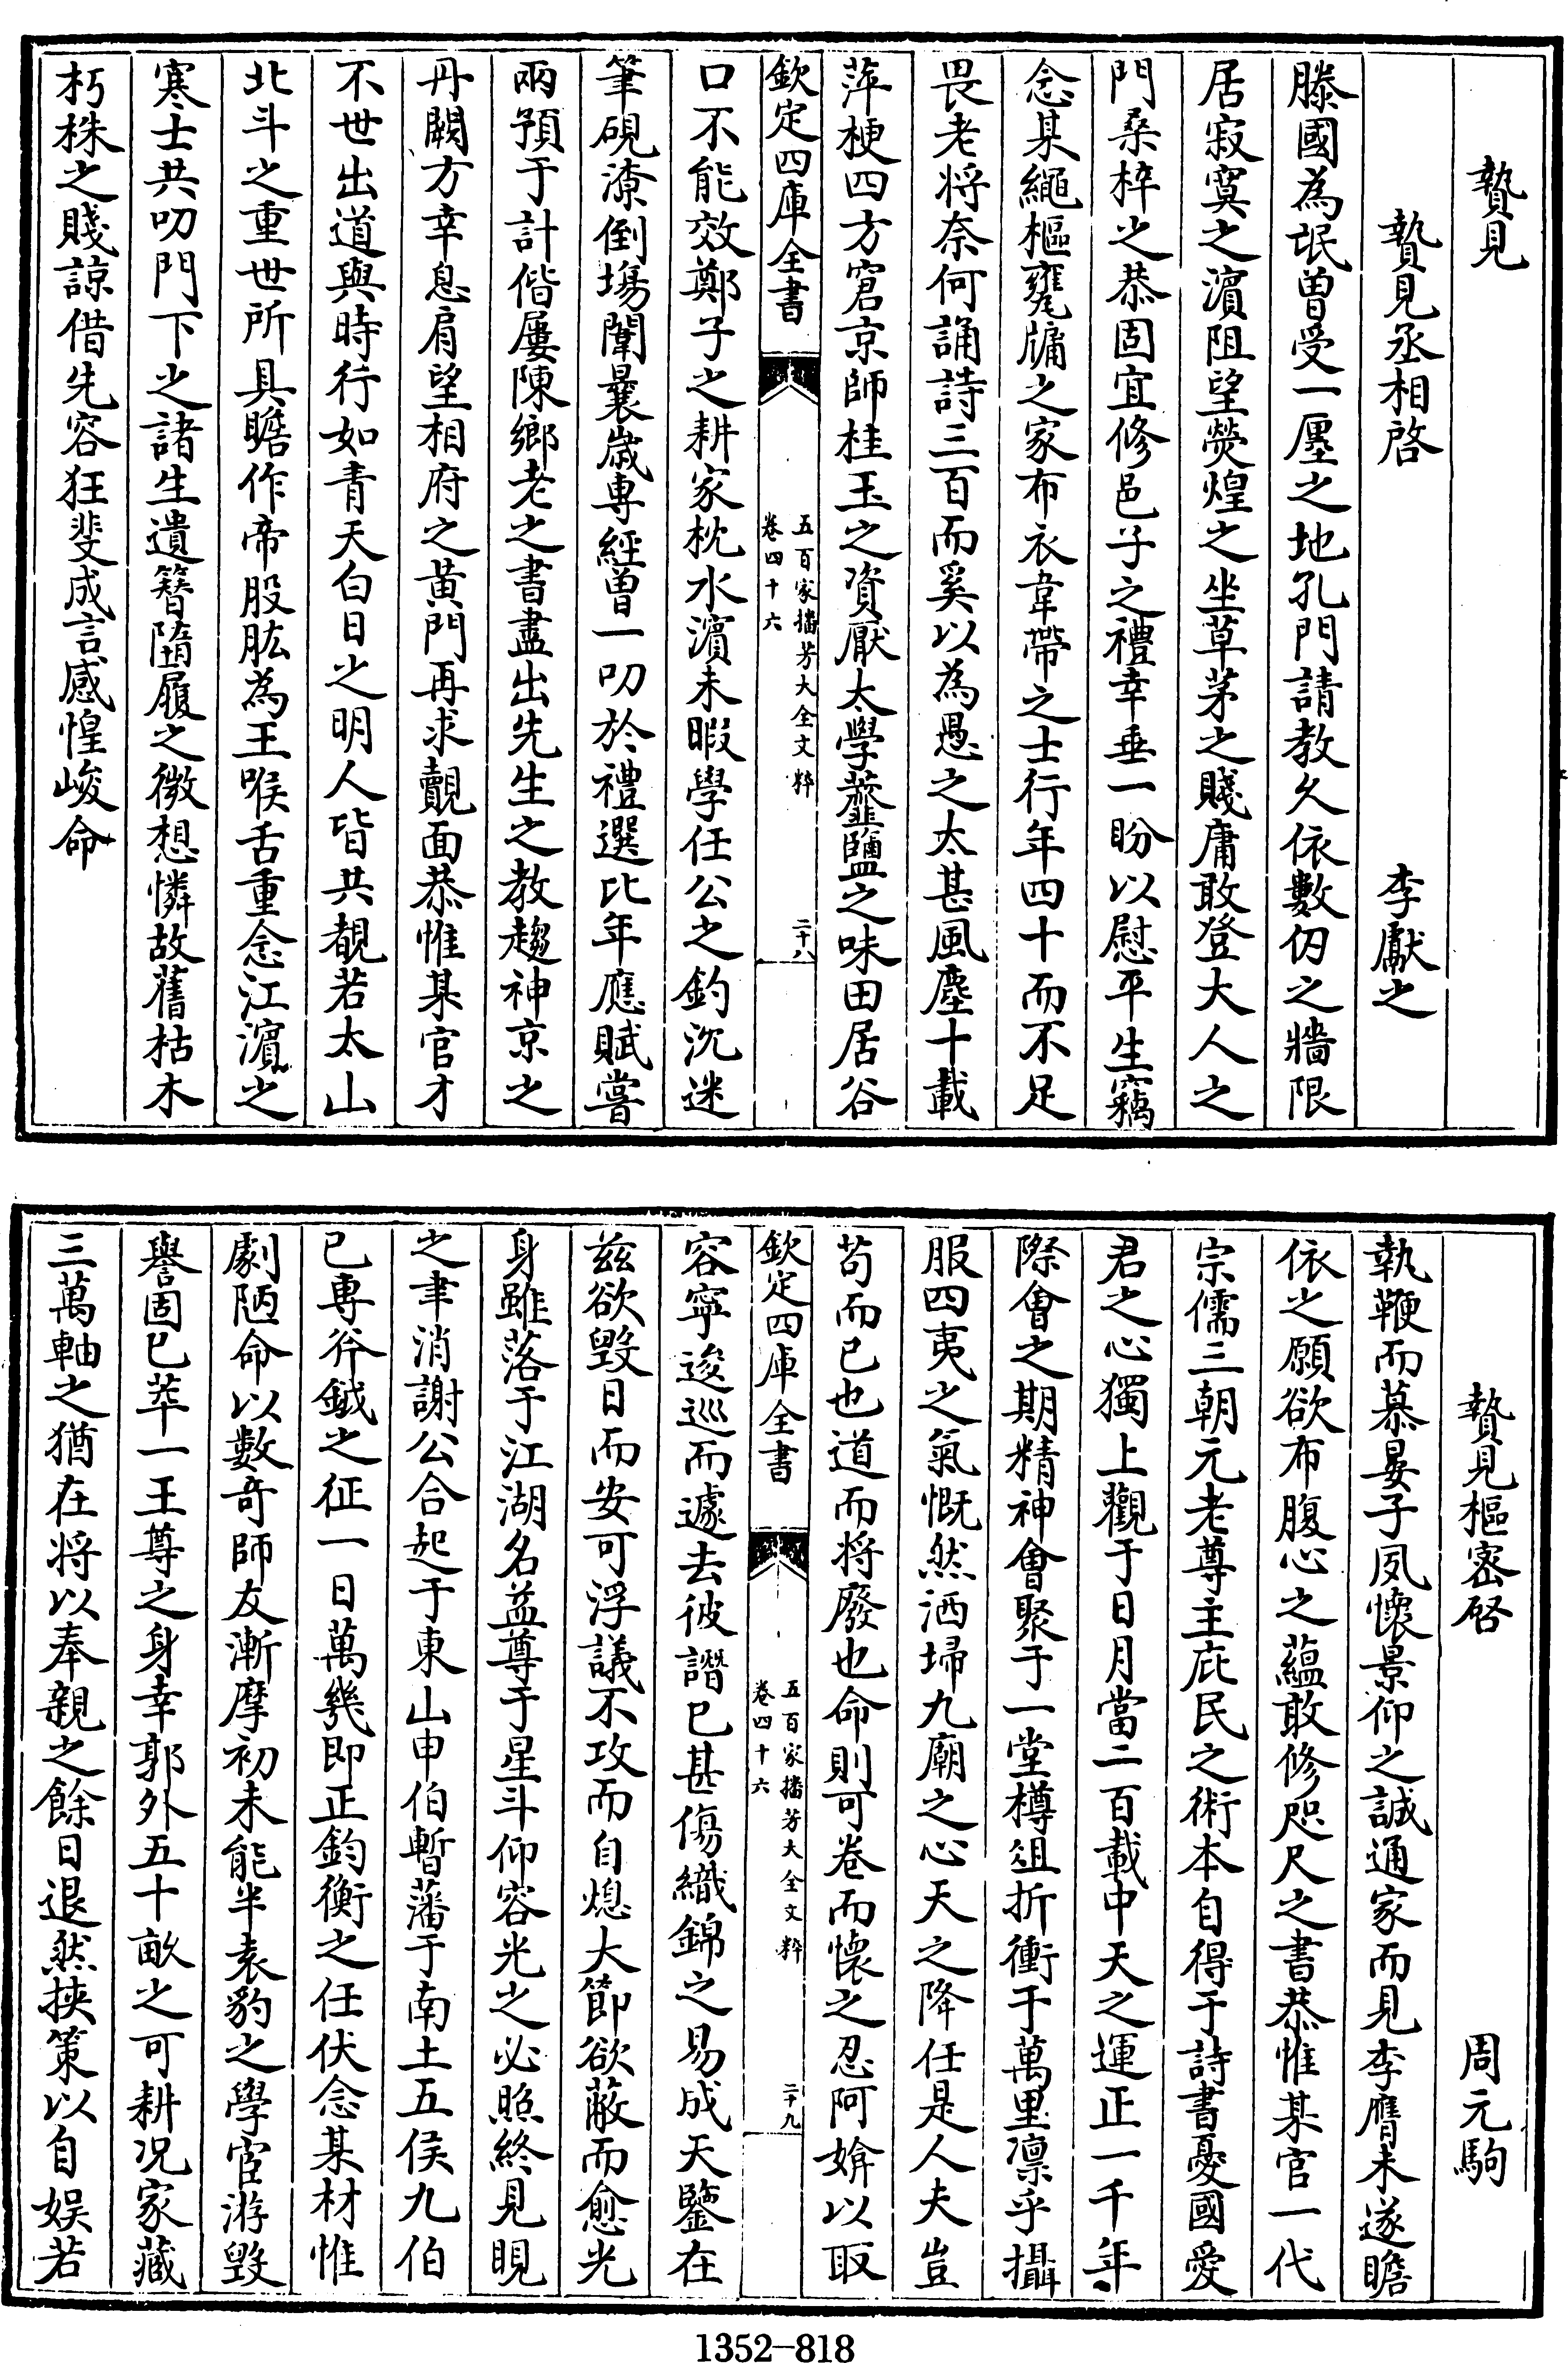 贄見
贄見丞相啓 李獻之
滕國為氓曽受一廛之地孔門請教久依數仞之牆限
居寂寞之濵阻望熒煌之坐草茅之賤庸敢登大人之
門桑梓之恭固宜修邑子之禮幸垂一盼以慰平生竊
念某繩樞甕牖之家布衣韋帶之士行年四十而不足
畏老將奈何誦詩三百而奚以為愚之太甚風塵十載
萍梗四方窘京師桂玉之資厭太學虀鹽之味田居谷
欽定四庫全書 五百家播芳大全文粹 卷四十六 二十八
口不能效鄭子之耕家枕水濵未暇學任公之釣沉迷
筆硯潦倒塲闈曩歲専經曽一叨於禮選比年應賦嘗
兩預于計偕屢陳鄉老之書盡出先生之教趨神京之
丹闕方幸息肩望相府之黄門再求覿面恭惟某官才
不世出道與時行如青天白日之明人皆共覩若太山
北斗之重世所具瞻作帝股肱為王喉舌重念江濵之
寒士共叨門下之諸生遺簪隋履之微想憐故舊枯木
朽株之賤諒借先容狂斐成言感惶峻命
贄見樞密啓 周元駒
執鞭而慕晏子夙懷景仰之誠通家而見李膺未遂瞻
依之願欲布腹心之藴敢修咫尺之書恭惟某官一代
宗儒三朝元老尊主庇民之術本自得于詩書憂國愛
君之心獨上觀于日月當二百載中天之運正一千年
際㑹之期精神㑹聚于一堂樽俎折衝于萬里凛乎攝
服四夷之氣慨然洒埽九廟之心天之降任是人夫豈
茍而已也道而將廢也命則可卷而懷之忍阿媕以取
欽定四庫全書 五百家播芳大全文粹 卷四十六 二十九
容寧逡巡而遽去彼譖已甚傷織錦之易成天鑒在
兹欲毀日而安可浮議不攻而自熄大節欲蔽而愈光
身雖落于江湖名益尊于星斗仰容光之必照終見晛
之聿消謝公合起于東山申伯暫藩于南土五侯九伯
已専斧鉞之征一日萬幾即正鈞衡之任伏念某材惟
劇陋命以數奇師友漸摩初未能半袁豹之學宦游毀
譽固已萃一王尊之身幸郭外五十畝之可耕况家藏
三萬軸之猶在將以奉親之餘日退然挾策以自娱若
1352-818